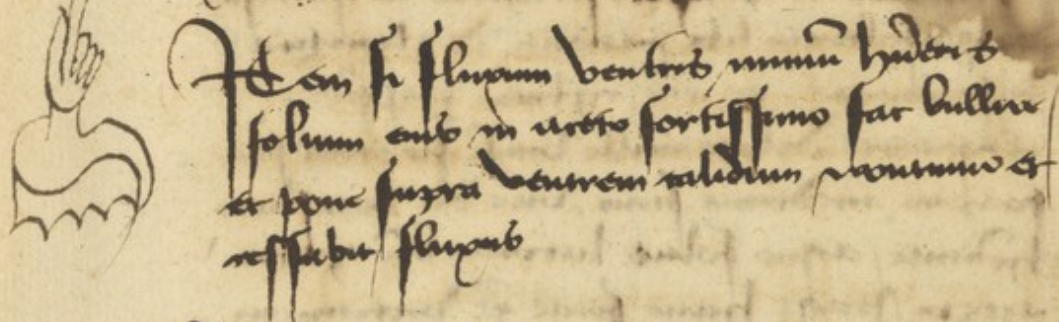 Item si fluxum ventris nimiū hūeris
folium eius in aceto fortissimo fac bullire
et pone supra ventrem calidum continuo et
cessabit fluxus